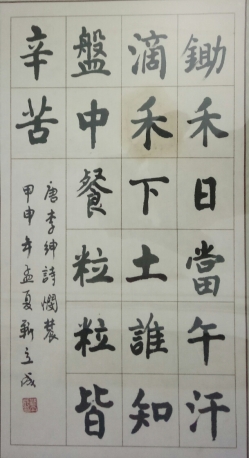 鋤禾日當午汗
滴禾下土誰知
盤中餐粒粒皆
辛苦
唐李紳詩憫農
甲申年孟夏靳立成